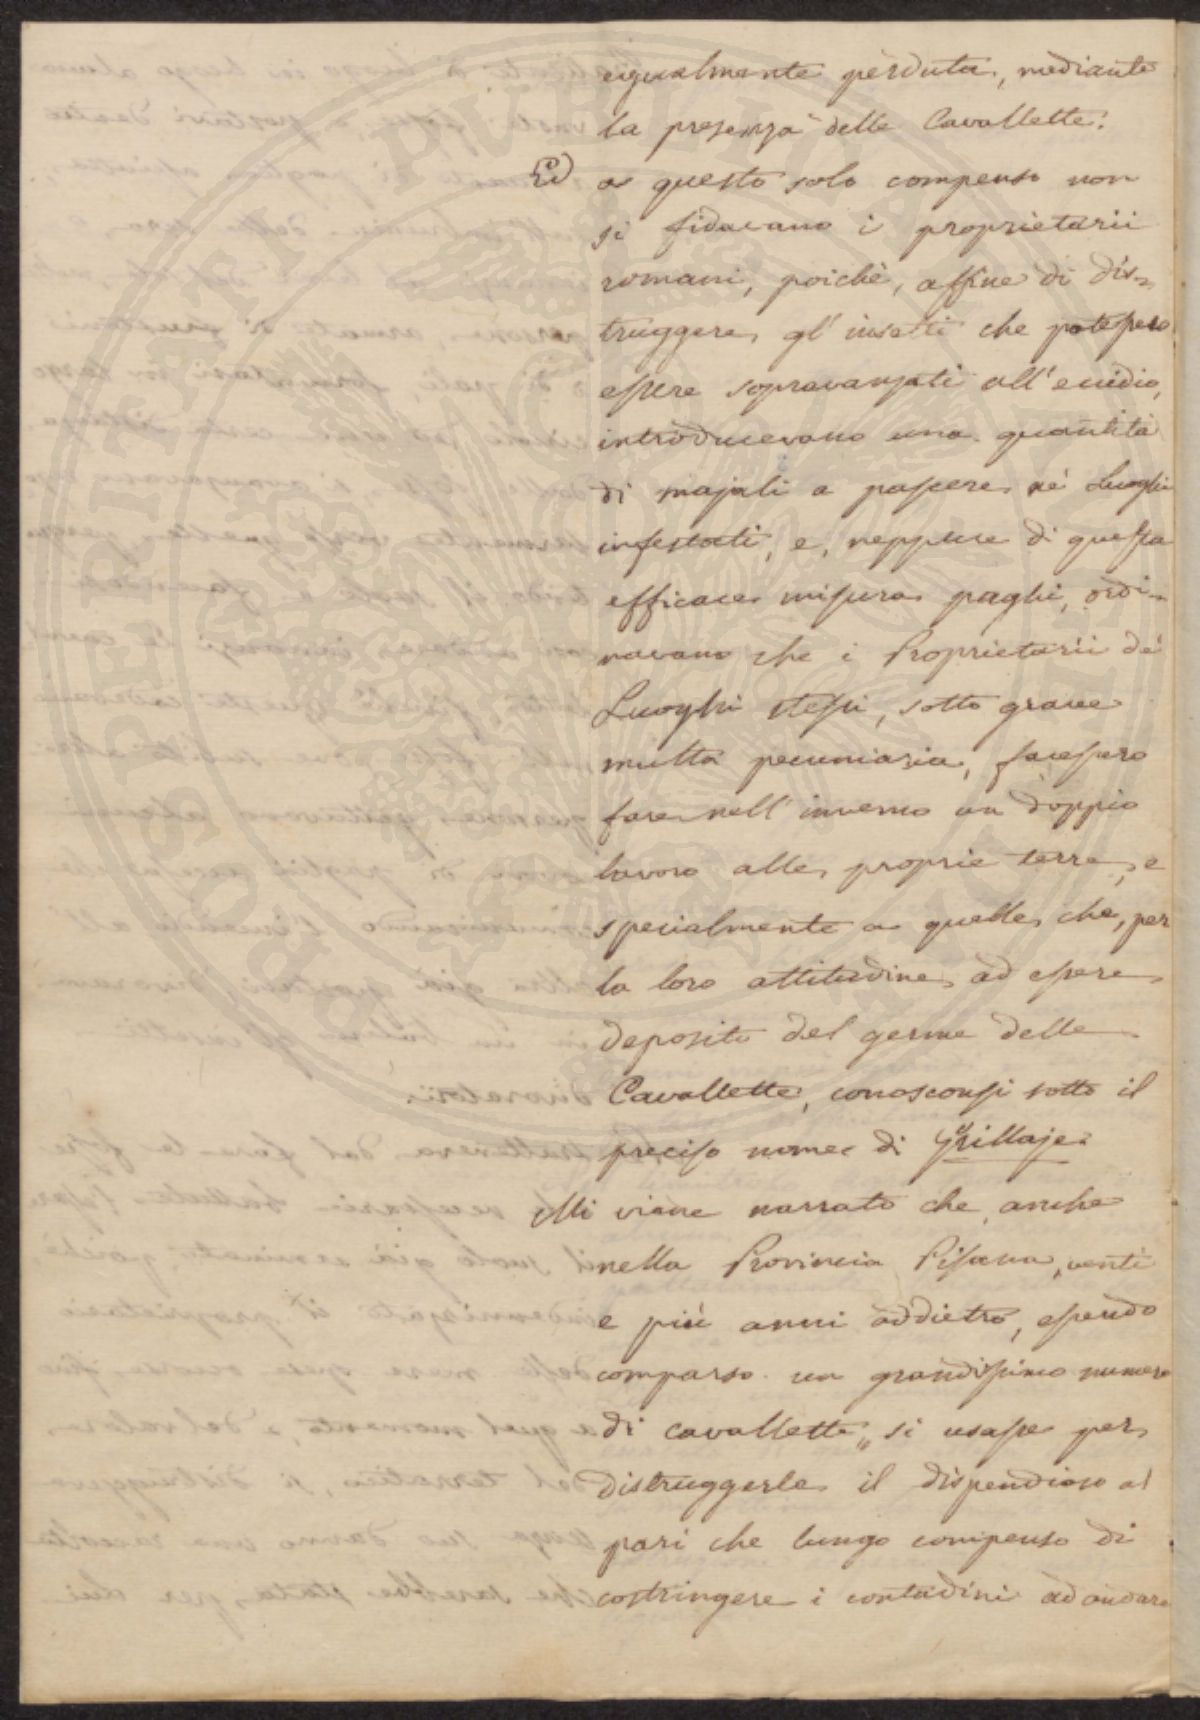 egualmente perduta, mediante
la presenza delle Cavallette.
Ed a questo solo compenso non
si fidavano i proprietarii
romani, poichè, affine di dis=
truggere gl' insetti che potessero
essere sopravanzati all' eccidio,
introducevano una quantità
di majali a pascere ne' Luoghi
infestati, e, neppure di questa
efficace misura paghi, ordi=
navano che i Proprietarii de'
Luoghi stessi, sotto grave
multa pecuniaria, facessero
fare nell' inverno un doppio
lavoro alle proprie terre, e
specialmente a quelle che, per
la loro attitudine ad essere
deposito del germe delle
Cavallette, conosconsi sotto il
preciso nome di Grillaje.
Mi viene narrato che, anche
nella Provincia Pisana, venti
e più anni addietro, essendo
comparso un grandissimo numero
di cavallette, si usasse per
distruggerle il dispendioso al
pari che lungo compenso di
costringere i contadini ad andare
POSPERITATI PUBLICAE AU